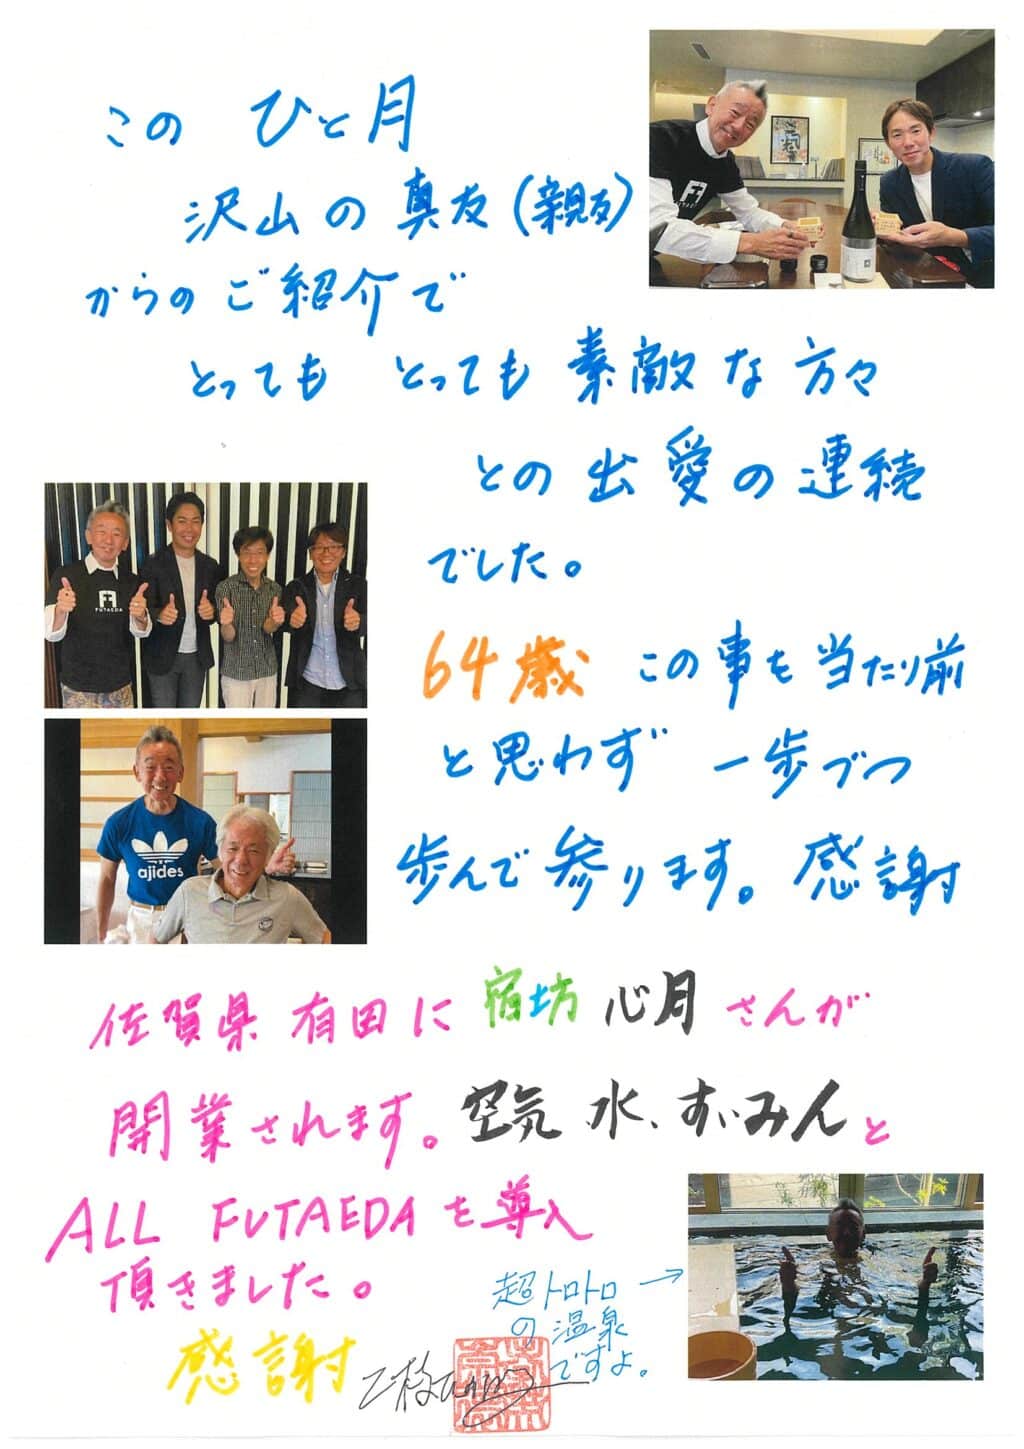 この ひと月
沢山の真友(親友)
からのご紹介で
とっても とっても 素敵な方々
との出愛の連続
でした。
64歳 この事を当たり前
と思わず 一歩づつ
歩んで参ります。感謝
FUTAEDA
ajides
佐賀県 有田に 宿坊 心月 さんが
開業されます。空気 水、すいみんと
ALL FUTAEDAを導入
頂きました。
超トロトロ →
の温泉
ですよ。
感謝